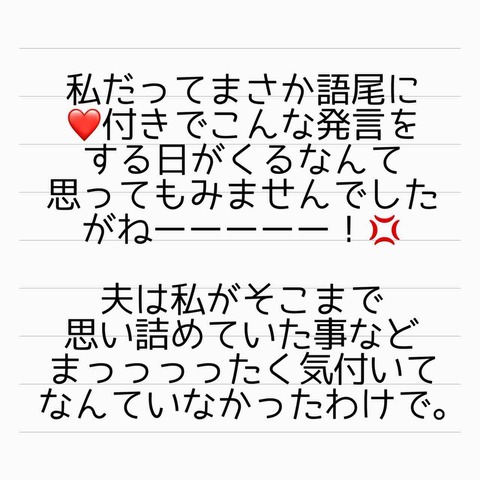 私だってまさか語尾に
❤️付きでこんな発言を
する日がくるなんて
思ってもみませんでした
がねーーーーー！💢
夫は私がそこまで
思い詰めていた事など
まっっっったく気付いて
なんていなかったわけで。